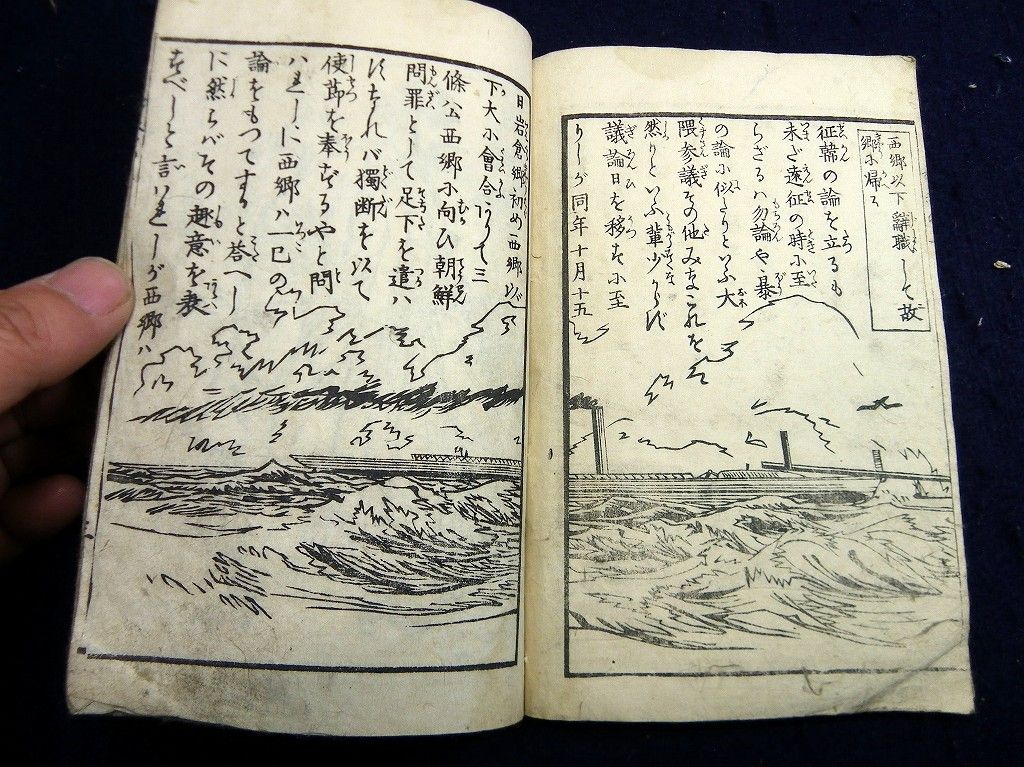 西郷以下辭職して故
郷に帰る
征韓の論を立るも
未だ遠征の時に至
らざるハ勿論や暴
の論に似たりといふ大
隈参議その他みなこれを
然りといふ輩少からず
議論日を移すに至
りしが同年十月十五
日岩倉郷初め西郷以
下大小會合ありて三
條公西郷に向ひ朝鮮
問罪として足下を遣ハ
すなれバ獨断を以て
使節を奉ずるやと問
ハれしに西郷ハ一己の
論をもつてすると答へし
に然らバその趣意を表
すべしと言れしが西郷ハ